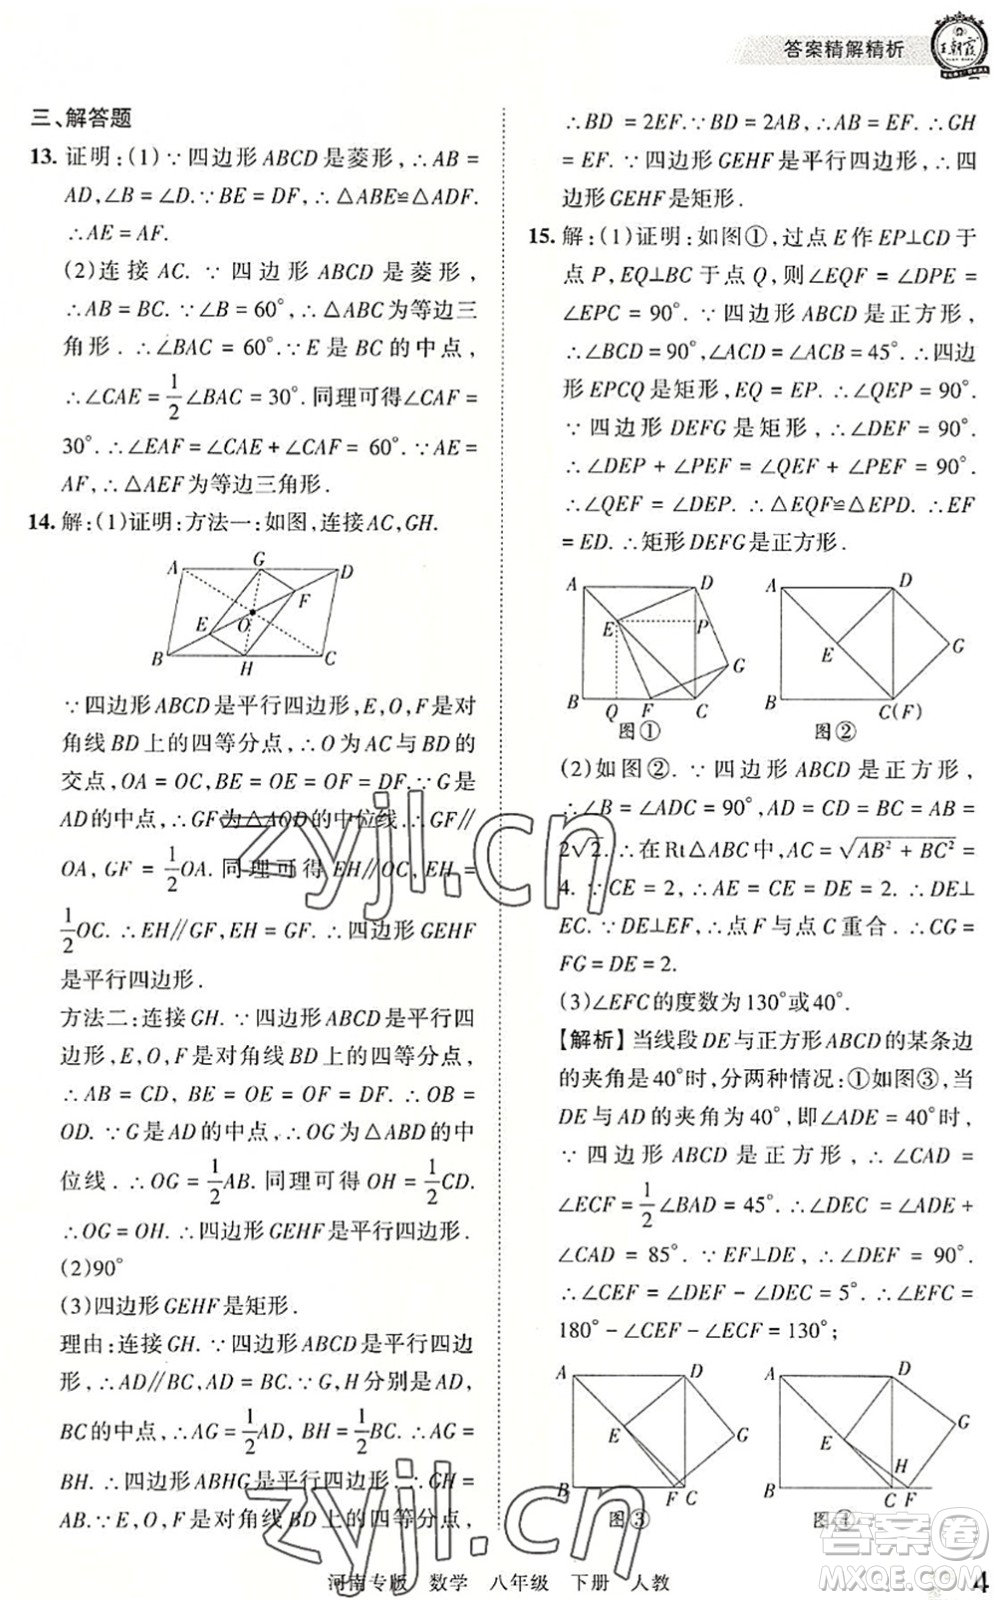 答案精解精析
王朝霞
三、解答题
13. 证明:(1)∵四边形ABCD是菱形,∴AB =
AD,∠B = ∠D. ∵BE = DF,∴△ABE≌△ADF.
∴AE = AF.
(2)连接 AC. ∵四边形 ABCD 是菱形,
∴AB = BC. ∵∠B = 60°,∴△ABC为等边三
角形. ∴∠BAC = 60°. ∵E 是 BC 的中点,
∴∠CAE = 1/2∠BAC = 30°. 同理可得∠CAF =
30°. ∴∠EAF = ∠CAE + ∠CAF = 60°. ∵AE =
AF,∴△AEF为等边三角形.
14. 解:(1)证明:方法一:如图,连接AC,GH.
A G D
F
E O
B H C
∵四边形ABCD是平行四边形,E,O,F是对
角线BD上的四等分点,∴O为AC与BD的
交点,OA = OC,BE = OE = OF = DF. ∵G是
AD的中点,∴GF为△AOD的中位线. ∴GF∥
OA, GF = 1/2OA. 同理可得 EH∥OC, EH =
1/2OC. ∴EH∥GF,EH = GF. ∴四边形GEHF
是平行四边形.
方法二:连接GH. ∵四边形ABCD是平行四
边形,E,O,F是对角线BD上的四等分点,
∴AB = CD, BE = OE = OF = DF. ∴OB =
OD. ∵G是AD的中点,∴OG为△ABD的中
位线. ∴OG = 1/2AB. 同理可得OH = 1/2CD.
∴OG = OH. ∴四边形GEHF是平行四边形.
(2)90°
(3)四边形GEHF是矩形.
理由:连接GH. ∵四边形ABCD是平行四边
形,∴AD∥BC,AD = BC. ∵G,H分别是AD,
BC的中点,∴AG = 1/2AD, BH = 1/2BC. ∴AG =
BH. ∴四边形ABHG是平行四边形. ∴GH =
AB. ∵E,O,F是对角线BD上的四等分点,
∴BD = 2EF. ∵BD = 2AB,∴AB = EF. ∴GH
= EF. ∵四边形GEHF是平行四边形,∴四
边形GEHF是矩形.
15. 解:(1)证明:如图①,过点E作EP⊥CD于
点P,EQ⊥BC于点Q,则∠EQF = ∠DPE =
∠EPC = 90°. ∵四边形ABCD是正方形,
∴∠BCD = 90°,∠ACD = ∠ACB = 45°. ∴四边
形EPCQ是矩形,EQ = EP. ∴∠QEP = 90°.
∵四边形DEFG是矩形,∴∠DEF = 90°.
∴∠DEP + ∠PEF = ∠QEF + ∠PEF = 90°.
∴∠QEF = ∠DEP. ∴△EQF≌△EPD. ∴EF
= ED. ∴矩形DEFG是正方形.
A D
E P
G
B Q F C
图①
A D
E G
B C(F)
图②
(2)如图②. ∵四边形ABCD是正方形,
∴∠B = ∠ADC = 90°,AD = CD = BC = AB =
2√2. ∴在Rt△ABC中,AC = √(AB² + BC²) =
4. ∵CE = 2,∴AE = CE = DE = 2. ∴DE⊥
EC. ∵DE⊥EF,∴点F与点C重合. ∴CG =
FG = DE = 2.
(3)∠EFC的度数为130°或40°.
【解析】当线段DE与正方形ABCD的某条边
的夹角是40°时,分两种情况:①如图③,当
DE与AD的夹角为40°,即∠ADE = 40°时,
∵四边形ABCD是正方形,∴∠CAD =
∠ECF = 1/2∠BAD = 45°. ∴∠DEC = ∠ADE +
∠CAD = 85°. ∵EF⊥DE, ∴∠DEF = 90°.
∴∠CEF = ∠DEF - ∠DEC = 5°. ∴∠EFC =
180° - ∠CEF - ∠ECF = 130°;
A D
E G
B F C
图③
A D
G
E
H
B C F
图④
zyjl.cn
zyjl.cn
答案卷
河南专版 数学 八年级 下册 人教
4